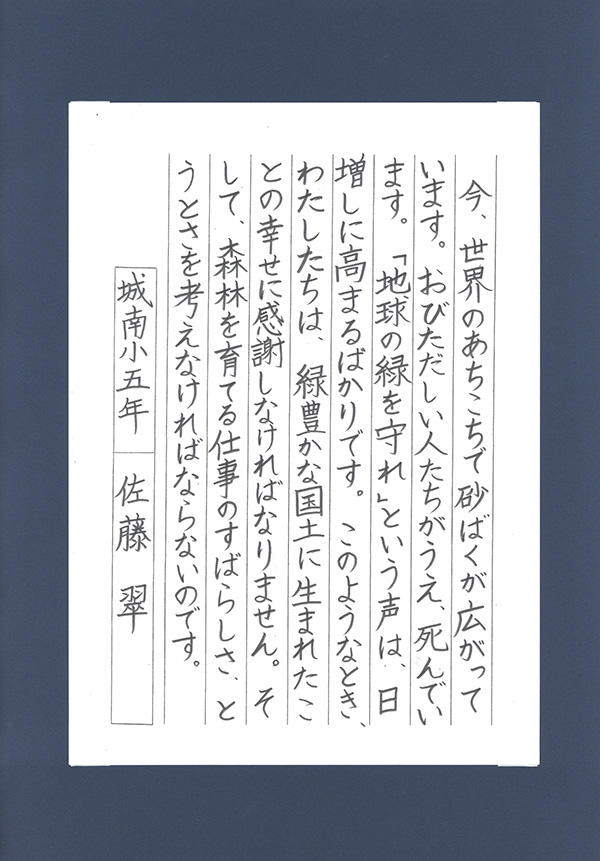 今、世界のあちこちで砂ばくが広がって
います。おびただしい人たちがうえ、死んでい
ます。「地球の緑を守れ」という声は、日
増しに高まるばかりです。このようなとき、
わたしたちは、緑豊かな国土に生まれたこ
との幸せに感謝しなければなりません。そ
して、森林を育てる仕事のすばらしさ、と
うとさを考えなければならないのです。
城南小五年 佐藤翠